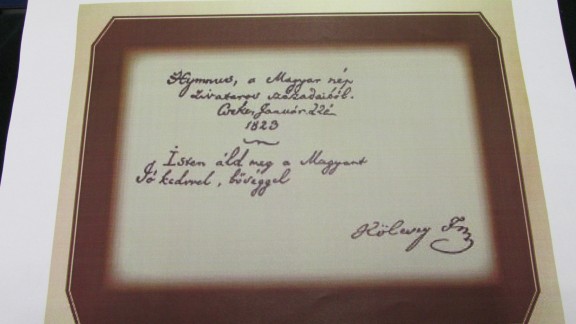 Hymnus, a Magyar nép
zivataros századaiból.
Cseke, Január 22é
1823
Isten áld meg a Magyart
Jó kedvvel, bőséggel
Kölcsey Fr